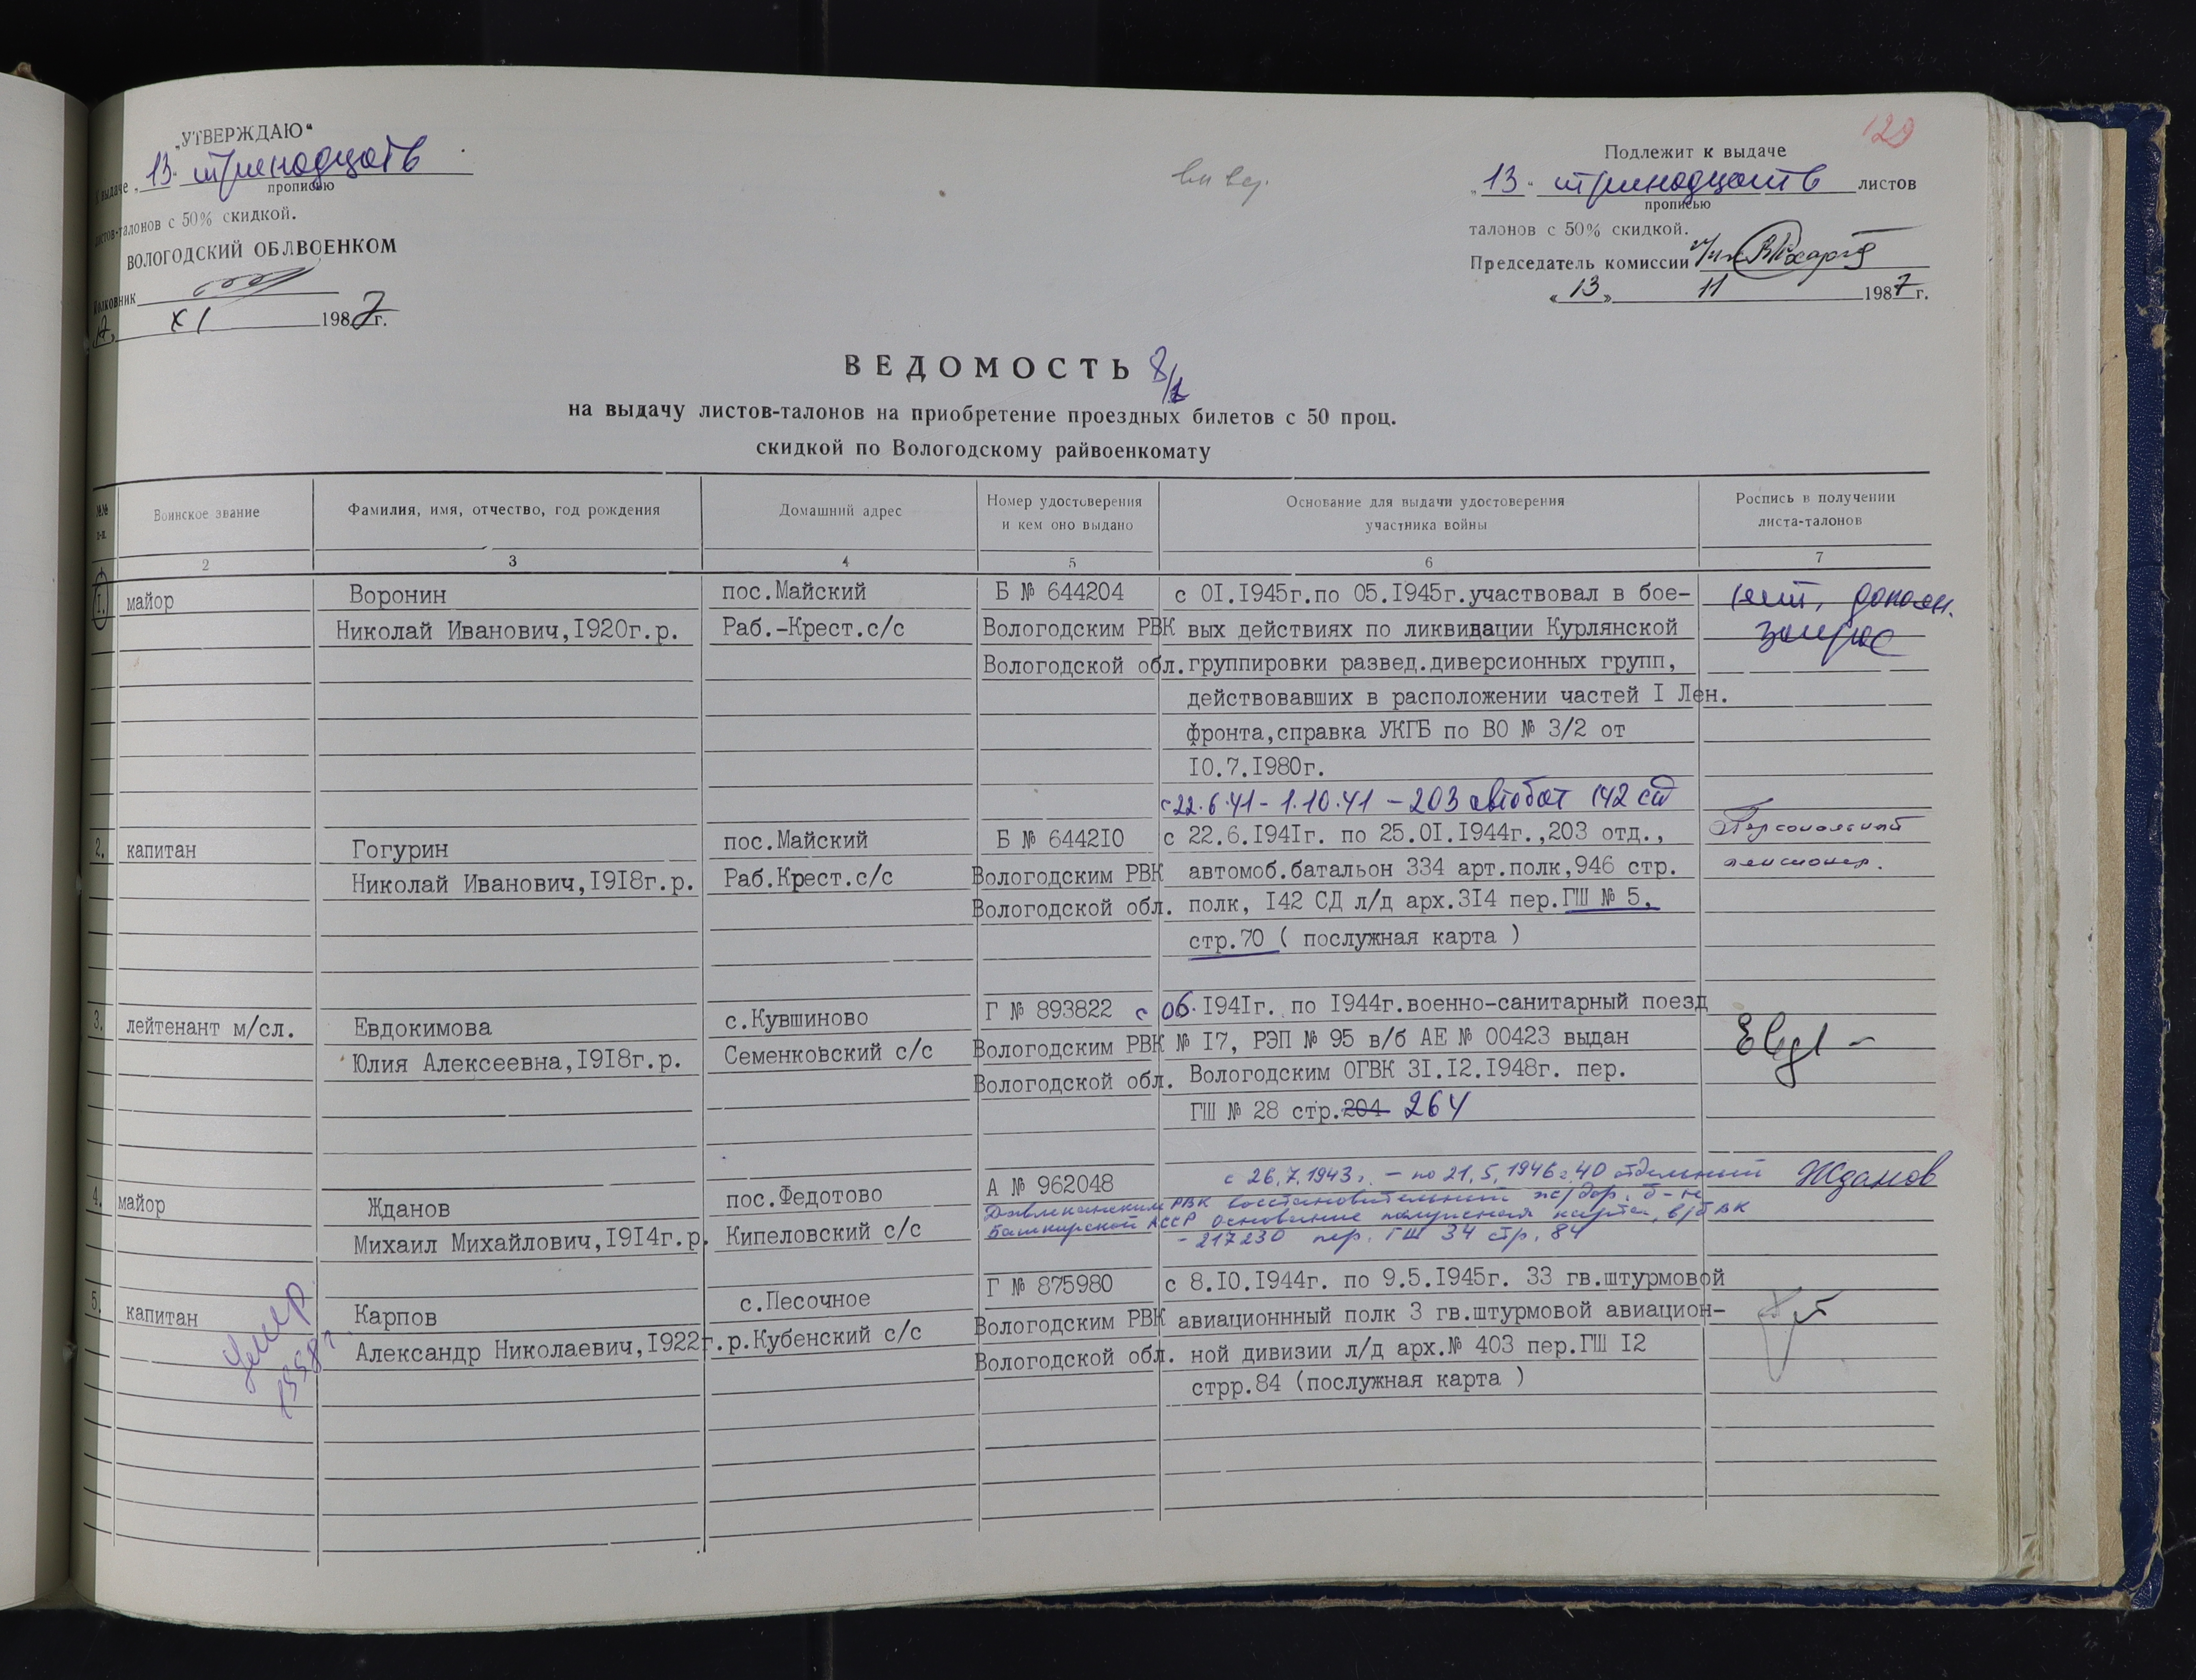 129
„УТВЕРЖДАЮ“
К выдаче „13“ тринадцать
прописью
листов-талонов с 50% скидкой.
ВОЛОГОДСКИЙ ОБЛВОЕНКОМ
Полковник
XI 1987г.
Подлежит к выдаче
„13“ тринадцать листов
прописью
талонов с 50% скидкой.
Председатель комиссии
«13» 11 1987г.
ВЕДОМОСТЬ 8/1
на выдачу листов-талонов на приобретение проездных билетов с 50 проц.
скидкой по Вологодскому райвоенкомату
№№ п-п.
Воинское звание
Фамилия, имя, отчество, год рождения
Домашний адрес
Номер удостоверения
и кем оно выдано
Основание для выдачи удостоверения
участника войны
Роспись в получении
листа-талонов
2 3 4 5 6 7
1. майор
Воронин
Николай Иванович,1920г.р.
пос.Майский
Раб.-Крест.с/с
Б № 644204
Вологодским РВК
Вологодской обл.
с 01.1945г.по 05.1945г.участвовал в бое-
вых действиях по ликвидации Курлянской
группировки развед.диверсионных групп,
действовавших в расположении частей I Лен.
фронта,справка УКГБ по ВО № 3/2 от
10.7.1980г.
с 22.6.41 - 1.10.41 - 203 автобат 142 сд
допол.
запрос
2. капитан
Гогурин
Николай Иванович,1918г.р.
пос.Майский
Раб.Крест.с/с
Б № 644210
Вологодским РВК
Вологодской обл.
с 22.6.1941г. по 25.01.1944г.,203 отд.,
автомоб.батальон 334 арт.полк,946 стр.
полк, 142 СД л/д арх.314 пер.ГШ № 5,
стр.70 ( послужная карта )
Персональный
пенсионер.
3. лейтенант м/сл.
Евдокимова
Юлия Алексеевна,1918г.р.
с.Кувшиново
Семенковский с/с
Г № 893822
Вологодским РВК
Вологодской обл.
с 06.1941г. по 1944г.военно-санитарный поезд
№ 17, РЭП № 95 в/б АЕ № 00423 выдан
Вологодским ОГВК 31.12.1948г. пер.
ГШ № 28 стр.204 264
4. майор
Жданов
Михаил Михайлович,1914г.р.
пос.Федотово
Кипеловский с/с
А № 962048
Давлекановским РВК
Башкирской АССР
с 26.7.1943г. - по 21.5.1946г. 40 отдельный
восстановительный ж/дор. б-н
Основание послужная карта, в/б ВК
- 217230 пер. ГШ 34 стр. 84
Жданов
5. капитан
Карпов
Александр Николаевич,1922г.р.
с.Песочное
Кубенский с/с
Г № 875980
Вологодским РВК
Вологодской обл.
с 8.10.1944г. по 9.5.1945г. 33 гв.штурмовой
авиационнный полк 3 гв.штурмовой авиацион-
ной дивизии л/д арх.№ 403 пер.ГШ 12
стрр.84 (послужная карта )
Умер